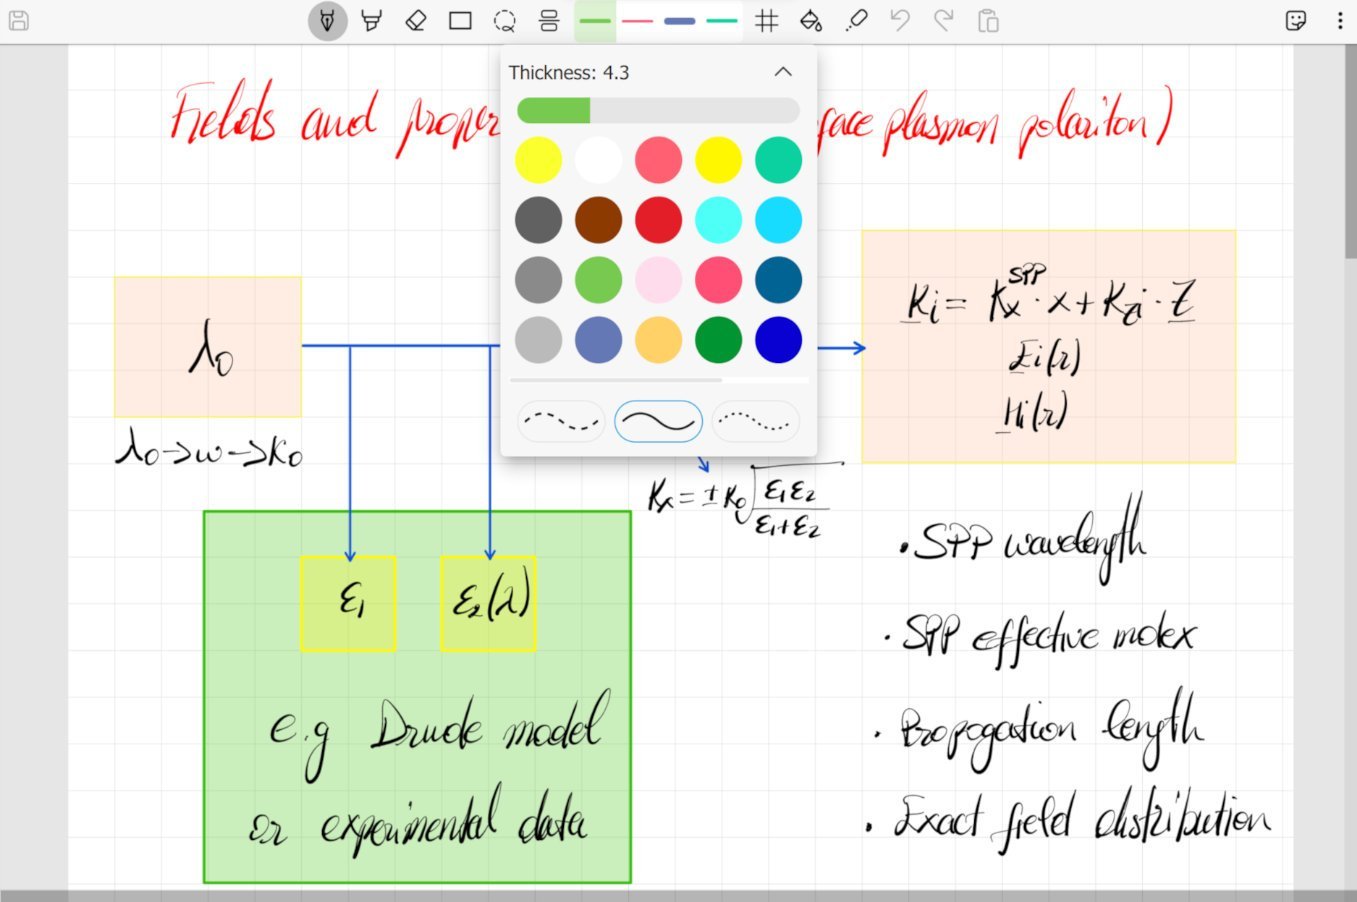 Thickness: 4.3
Fields and proper
face plasmon polariton)
λ0
λ0->w->K0
Ki = Kx^SPP · x + Kzi · z
Ei(r)
Hi(r)
Kx = ± K0 √(ε1ε2 / ε1+ε2)
ε1
ε2(λ)
e.g Drude model
or experimental data
• SPP wavelength
• SPP effective index
• Propogation length
• Exact field distribution